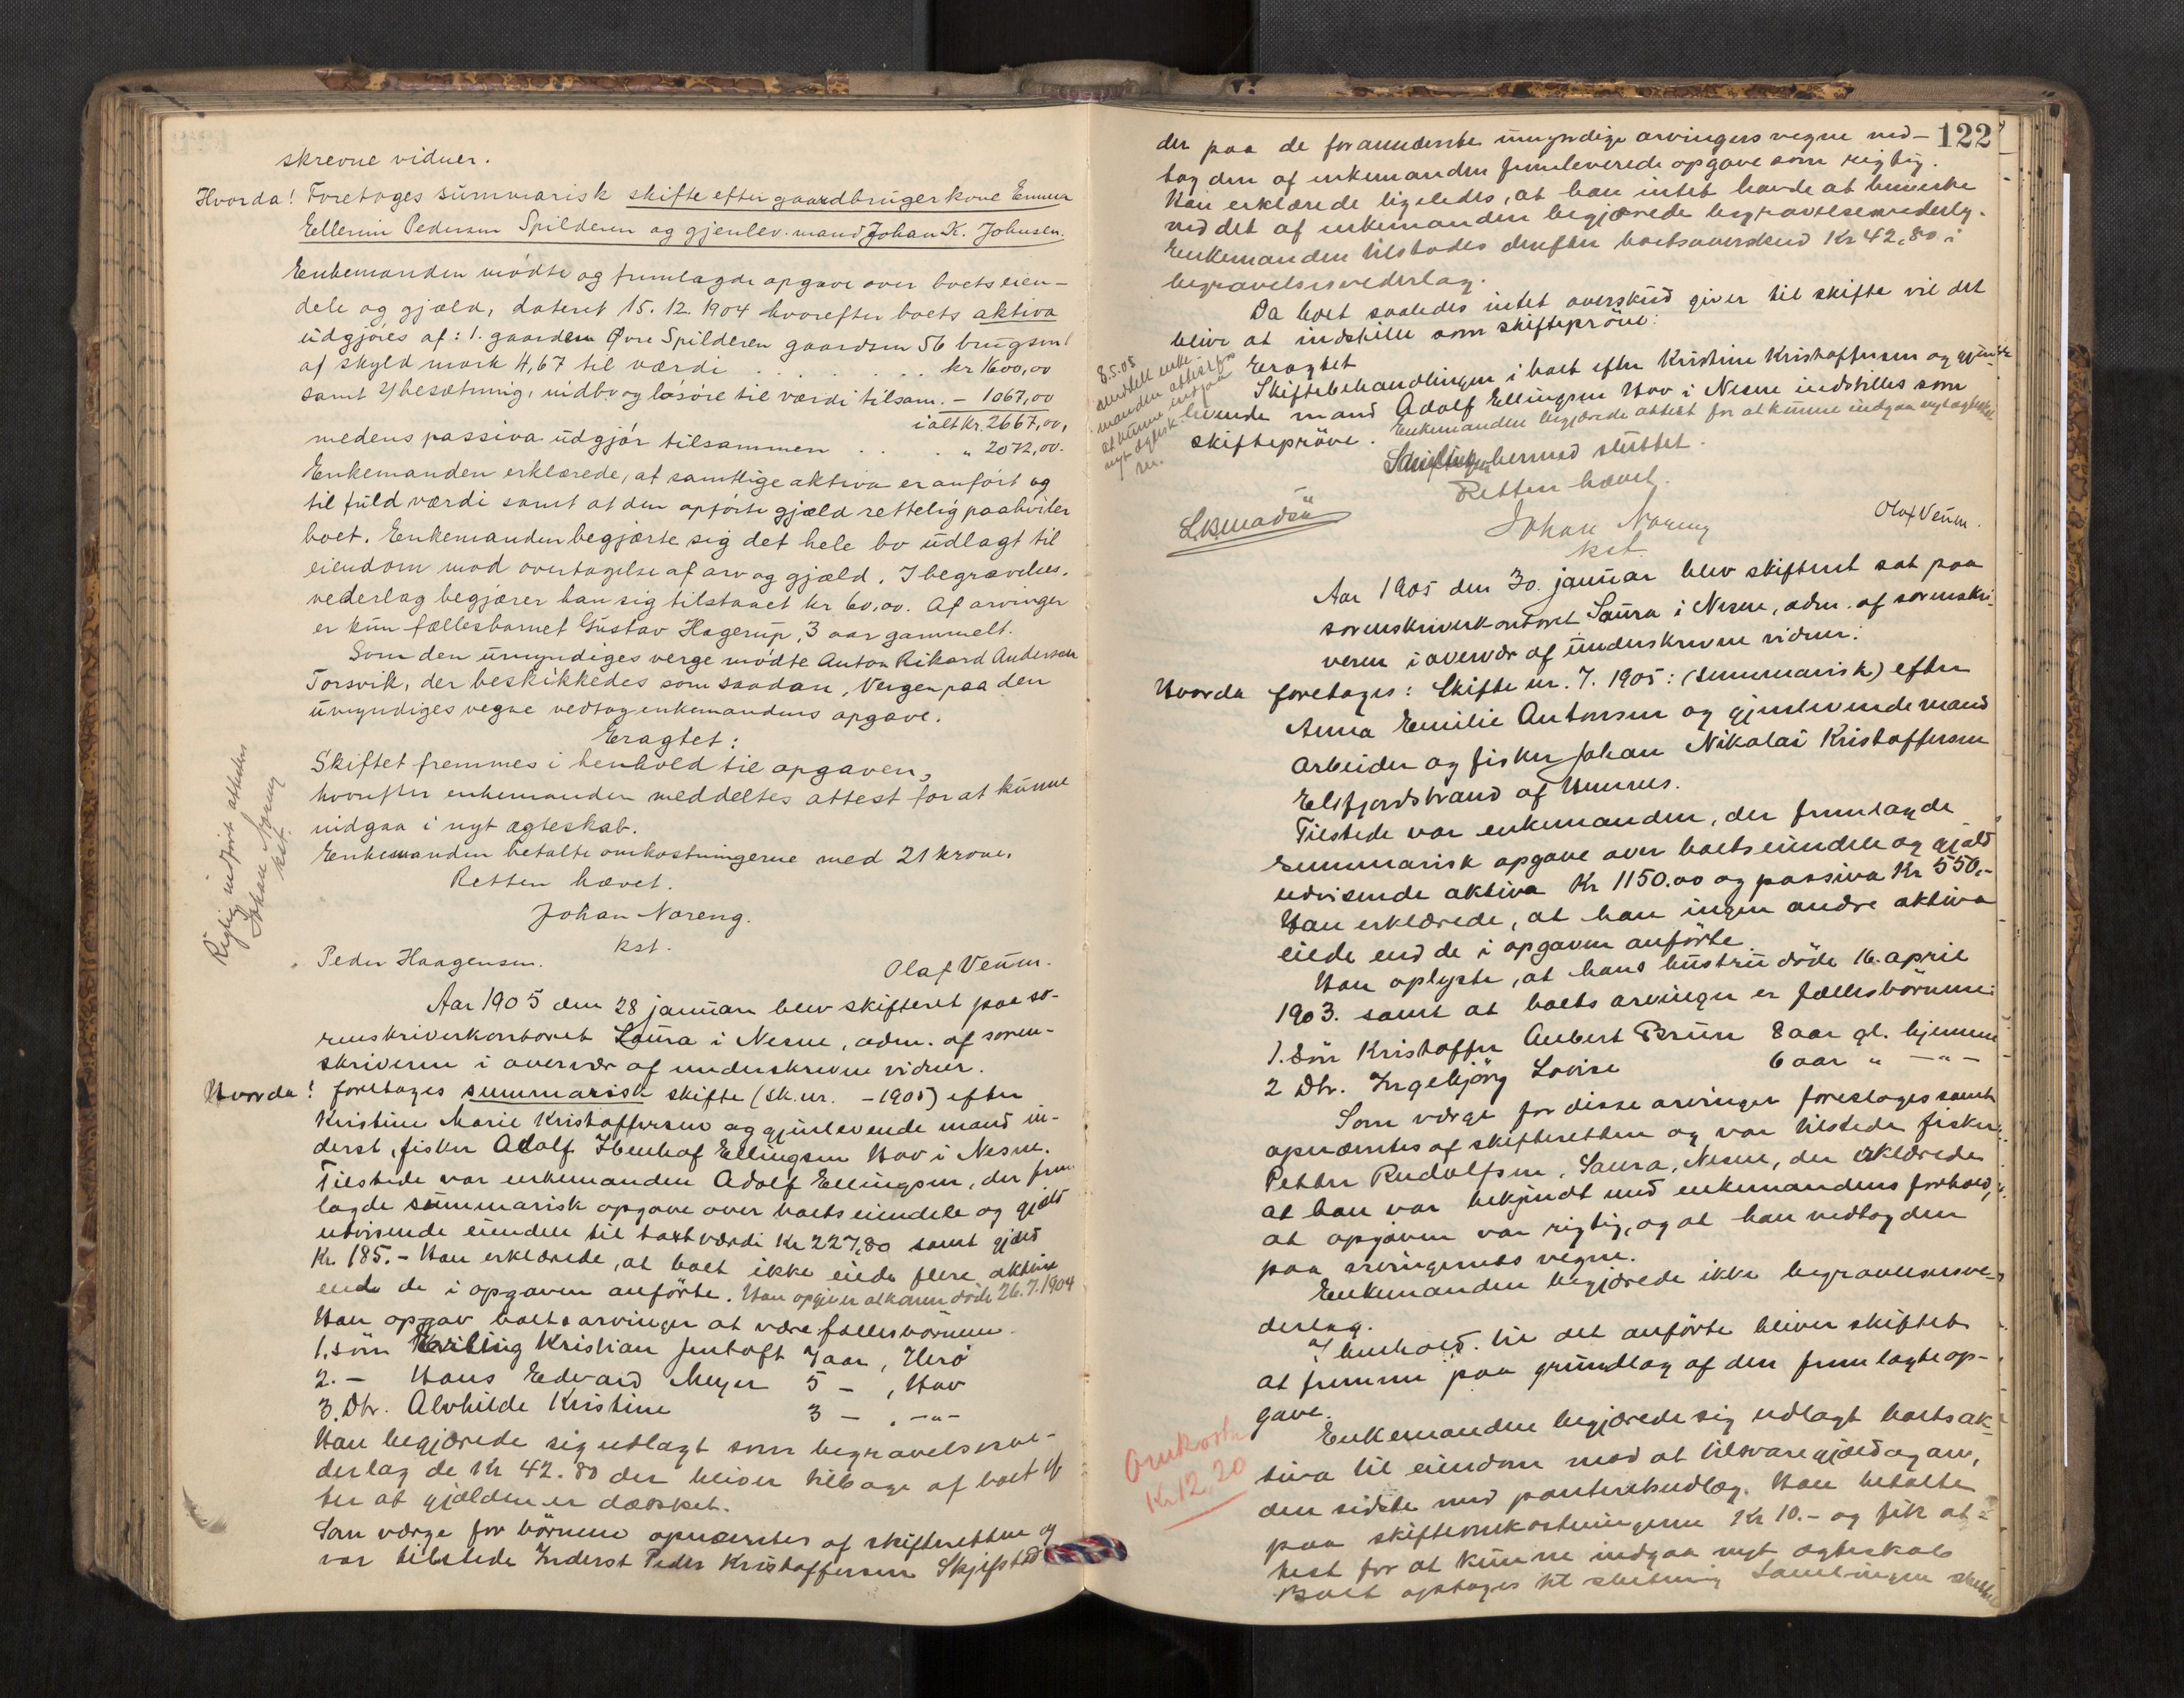 skrevne vidner.
Hvorda! Foretoges summarisk skifte efter gaardbrugerkone Emma
Ellerine Pedersen Spilderen og gjenlev. mand Johan K. Johnsen.
Enkemanden mødte og fremlagde opgave over boets eien-
dele og gjæld, dateret 15.12.1904 hvorefter boets aktiva
udgjøres af: 1. gaarden Øvre Spilderen gaardsnr 56 brugsnr 1
af skyld mark 4,67 til værdi . . . . . . . kr 1600,00
samt besætning, indbo og løsøre til værdi tilsam. – 1067,00
ialt kr. 2667,00,
medens passiva udgjør tilsammen . . . „ 2072,00.
Enkemanden erklærede, at samtlige aktiva er anført og
til fuld værdi samt at den opførte gjæld rettelig paahviler
boet. Enkemanden begjærte sig det hele bo udlagt til
eiendom mod overtagelse af arv og gjæld. I begravelses-
vederlag begjærer han sig tilstaaet kr 60,00. Af arvinger
er kun fællesbarnet Gustav Hagerup, 3 aar gammelt.
Som den umyndiges verge mødte Anton Rikard Andersen
Torsvik, der beskikkedes som saadan, Vergen paa den
umyndiges vegne vedtog enkemandens opgave.
Eragtet:
Skiftet fremmes i henhold til opgaven,
hvorefter enkemanden meddeltes attest for at kunne
indgaa i nyt ægteskab.
Enkemanden betalte omkostningerne med 21 kroner.
Retten hævet.
Johan Noreng.
kst.
Peder Haagensen. Olaf Venm.
Rigtig indført attesteres
Johan Noreng
kst.
Aar 1905 den 28 januar blev skifteret paa so-
renskriverkontoret Saura i Nesne, adm. af soren-
skriveren i overvær af underskrevne vidner.
Hvorda! foretoges summarisk skifte (sk. nr. – 1905) efter
Kristine Marie Kristoffersen og gjenlevende mand in-
derst, fisker Adolf Ellingsen Hov i Nesne.
Tilstede var enkemanden Adolf Ellingsen, der frem
lagde summarisk opgave over boets eiendele og gjæld
udvisende eiendele til taxtværdi Kr 227,80 samt gjæld
Kr. 185.- Han erklærede, at boet ikke eiede flere aktiva
ende de i opgaven anførte. Han opgiver at konen døde 26.7.1904
Han opgav boets arvinger at være fællesbørnene.
1. søn Kristian Jentoft 7 aar, Herø
2. – Hans Edvard Meyer 5 – , Hov
3. Dtr. Alvhilde Kristine 3 – , –„–
Han begjærede sig udlagt som begravelsesve-
derlag de Kr 42.80 der bliver tilbage af boet ef
ter at gjælden er dækket.
Som værge for börnene opnævntes af skifteretten og
var tilstede Inderst Peder Kristoffersen Skjefsted
122
der paa de foranneverte umyndige arvingers vegne ved-
tog den af enkemanden fremleverede opgave som rigtig.
Han erklærede ligeledes, at han intet havde at bemerke
ved det af enkemanden begjærede begravelsesvederlag.
Enkemanden tilstodes derefter boetsoverskud Kr 42,80 i
begravelsesvederlag.
Da boet saaledes intet overskud giver til skifte vil det
blive at indstille som skifteprøve:
Eragtet
Skiftebehandlingen i boet efter Kristine Kristoffersen og gjen-
levende mand Adolf Ellingsen Hov i Nesne indstilles som
skifteprøve. Enkemanden begjærede attest for at kunne indgaa nyt ægteskab.
8.5.05
meddelt enke
manden attest for
at kunne indgaa
nyt ægtesk.
hermed sluttet.
Retten hævet.
Johan Noreng
kst
Olaf Venm.
Aar 1905 den 30. januar blev skifteret sat paa
sorenskriverkontoret Saura i Nesne, adm. af sorenskri-
veren i overvær af underskrevne vidner:
Hvorda foretoges: Skifte nr. 7. 1905: (summarisk) efter
Anna Emilie Antonsen og gjenlevende mand
arbeider og fisker Johan Nikolai Kristoffersen
Elsfjordstrand af Hemnes.
Tilstede var enkemanden, der fremlagde
summarisk opgave over boets eiendele og gjæld
udvisende aktiva Kr 1150.00 og passiva Kr 550.-
Han erklærede, at han ingen andre aktiva
eiede end de i opgaven anførte.
Han oplyste, at hans hustru døde 16. april
1903. samt at boets arvinger er fællesbørnene:
1. Søn Kristoffer Aubert Brun 8 aar gl. hjemme
2 Dtr. Ingebjörg Lovise 6 aar „ –„–
Som værge for disse arvinger foresloges samt
opnævntes af skifteretten og var tilstede fisker
Petter Rudolfsen, Saura, Nesne, der erklærede
at han var bekjendt med enkemandens forhold,
at opgaven var rigtig, og at han vedtog den
paa arvingernes vegne.
Enkemanden begjærede ikke begravelsesve-
derlag.
I henhold til det anførte bliver skiftet
at fremme paa grundlag af den fremlagte op-
gave.
Enkemanden begjærede sig udlagt boets ak-
tiva til eiendom mod at tilsvare gjæld og arv,
den sidste mod panterhudlæg. Han betalte
paa skifteomkostningerne Kr 10.- og fik at-
test for at kunne indgaa nyt ægteskab
Boet optages til slutning Samlingen sluttet
Omkostn
Kr 12.20